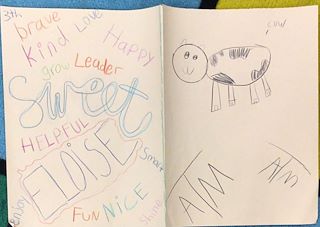 3th
brave
Kind
Love
Happy
grow
Leader
Sweet
HELPFUL
ELOISE
Smart
Enjoy
FUN
NiCE
Shine
cow
ATM
ATM